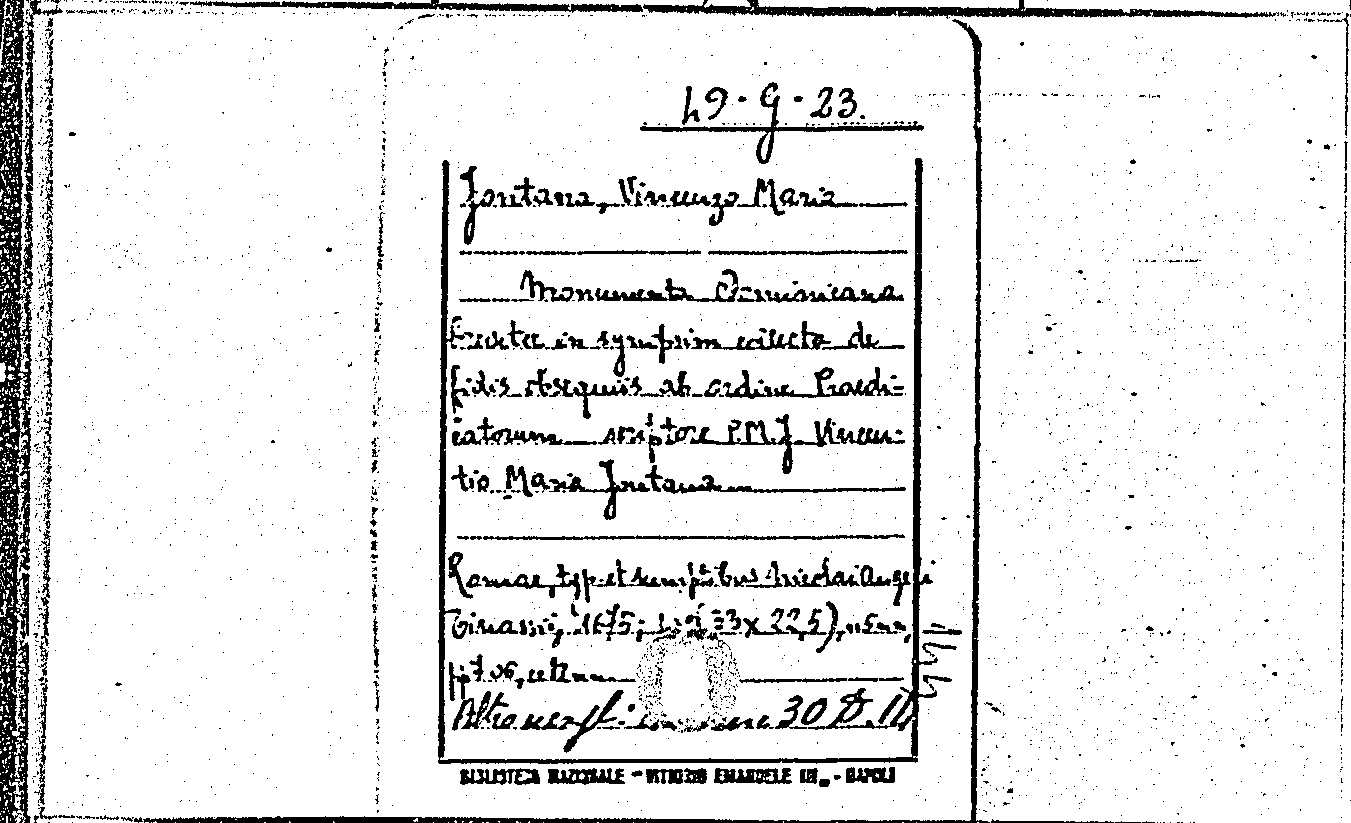 49·G·23.
Fontana, Vincenzo Maria
Monumenta Dominicana
breviter in synopsim collecta de
fidis obsequiis ab ordine Praedi=
catorum scriptore P.M.F. Vincen=
tio Maria Fontana
Romae, typ. et sumptibus Nicolai Angeli
Tinassi, 1675; 33x22,5),
pp 706,
Altro 30 D. 11
BIBLIOTECA NAZIONALE - VITTORIO EMANUELE III - NAPOLI